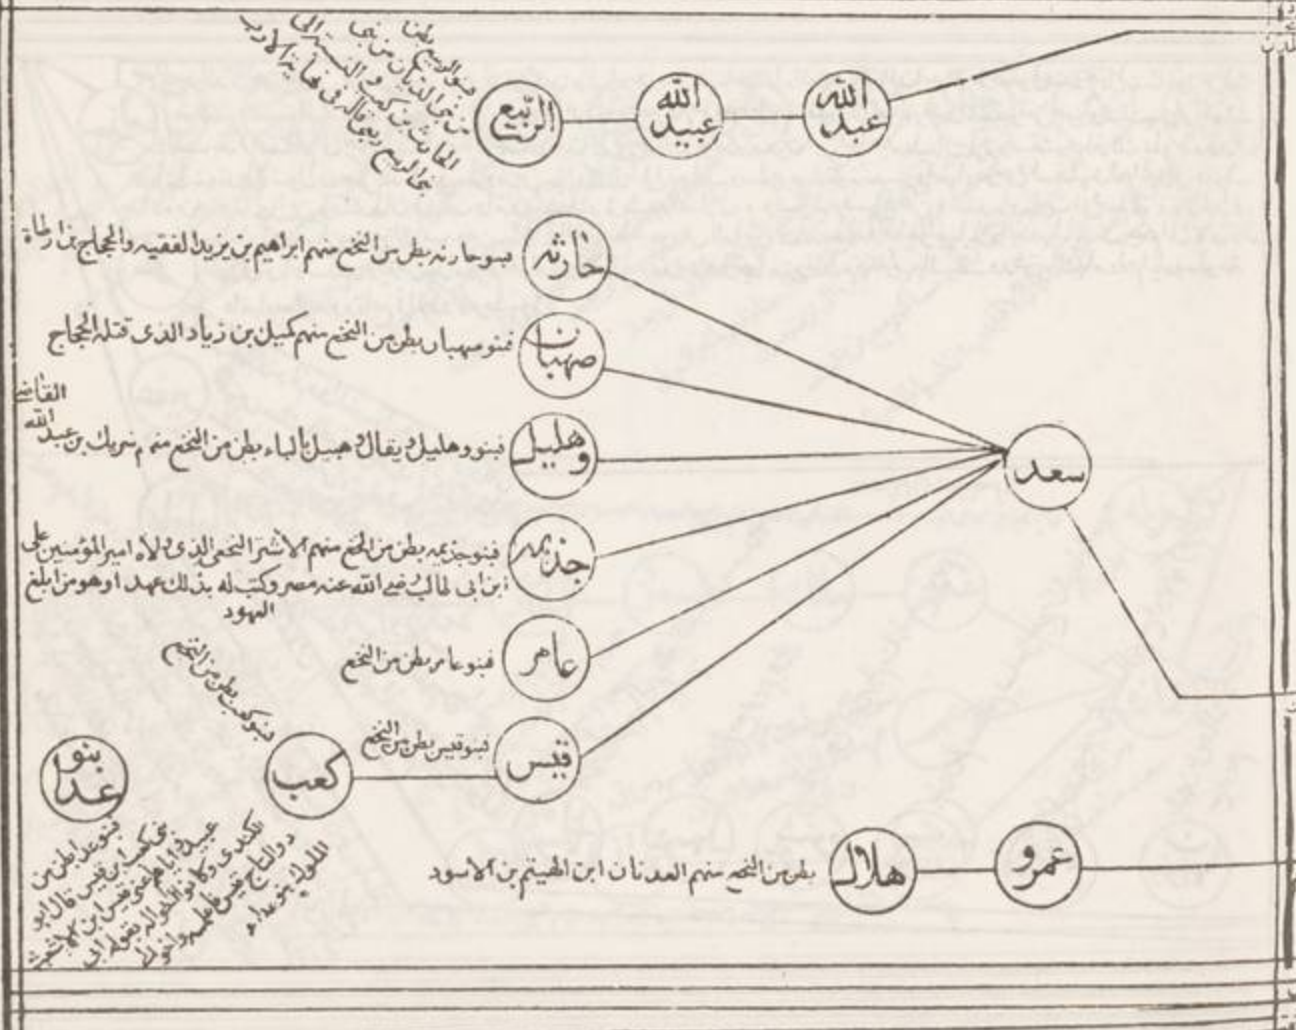 عبد الله
عبيد الله
الربيع
فبنو الربيع بطن
من بنى الديان من بنى
الحارث بن كعب والنسبة الى
بنى الربيع ربعى قاله فى نهاية الارب
حارثه
فبنو حارثه بطن من النخع منهم ابراهيم بن يزيد الفقيه والحجاج بن ارطاة
صهبان
فبنو صهبان بطن من النخع منهم كميل بن زياد الذى قتله الحجاج
وهليل
فبنو وهليل ويقال وهبيل بالباء بطن من النخع منهم شريك بن عبد الله
القاضى
سعد
جذيمه
فبنو جذيمه بطن من النخع منهم الاشتر النخعى الذى ولاه امير المؤمنين على
ابن ابى طالب رضى الله عنه مصر وكتب له بذلك عهدا وهو من ابلغ
العهود
عامر
فبنو عامر بطن من النخع
قيس
فبنو قيس بطن من النخع
كعب
فبنو كعب بطن من النخع
بنو
عدا
فبنو عدا بطن من
بنى كعب ابن قيس قال ابو
عبيد
الكندى وكانوا اخواله بقوله ابى
ذو التاج قيس
الملوك بنو عداء
عمرو
هلال
بطن من النخع منهم العدنان ابن الهيثم بن الاسود